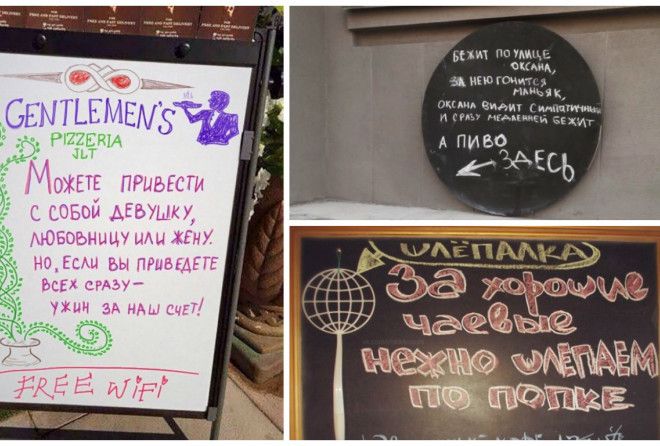 GENTLEMEN'S
PIZZERIA
JLT
МОЖЕТЕ ПРИВЕСТИ
С СОБОЙ ДЕВУШКУ,
ЛЮБОВНИЦУ ИЛИ ЖЕНУ.
НО, ЕСЛИ ВЫ ПРИВЕДЕТЕ
ВСЕХ СРАЗУ —
УЖИН ЗА НАШ СЧЕТ!
FREE WiFi
БЕЖИТ ПО УЛИЦЕ
ОКСАНА,
ЗА НЕЮ ГОНИТСЯ
МАНЬЯК,
ОКСАНА ВИДИТ СИМПАТИЧНЫЙ
И СРАЗУ МЕДЛЕННЕЙ БЕЖИТ
А ПИВО
ЗДЕСЬ
ШЛЁПАЛКА
За хорошие
чаевые
нежно ШЛЁПАЕМ
ПО ПОПКЕ